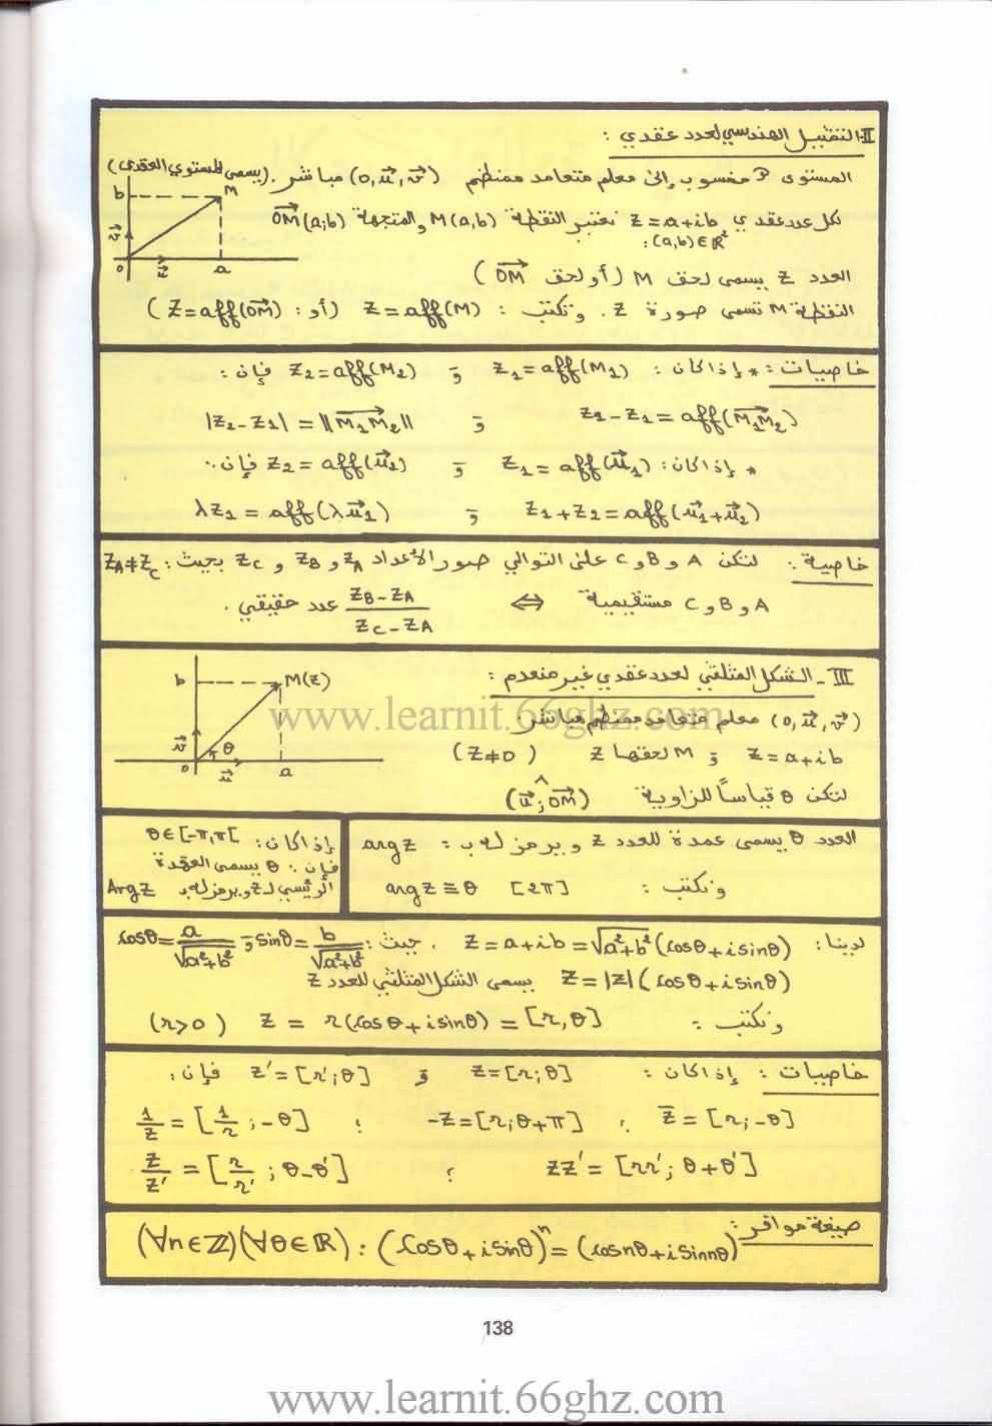 II - التمثيل الهندسي لعدد عقدي :
المستوى P منسوب إلى معلم متعامد ممنظم (o, u⃗, v⃗) مباشر. (يسمى المستوى العقدي)
لكل عدد عقدي z = a+ib نعتبر النقطة M(a,b) والمتجهة OM⃗(a;b)
: (a,b) ∈ ℝ²
العدد z يسمى لحق M (أو لحق OM⃗)
النقطة M تسمى صورة z. ونكتب : z = aff(M) (أو : z = aff(OM⃗))
b M
v⃗
o u⃗ a
خاصيات : * إذا كان : z₁ = aff(M₁) و z₂ = aff(M₂) فإن :
z₂ - z₁ = aff(M₁M₂⃗) و |z₂ - z₁| = ||M₁M₂⃗||
* إذا كان : z₁ = aff(u⃗₁) و z₂ = aff(u⃗₂) فإن :
z₁ + z₂ = aff(u⃗₁ + u⃗₂) و λz₁ = aff(λu⃗₁)
خاصية : لتكن A و B و C على التوالي صور الأعداد z_A و z_B و z_C بحيث : z_A ≠ z_C
A و B و C مستقيمية ⇔ (z_B - z_A)/(z_C - z_A) عدد حقيقي .
III - الشكل المثلثي لعدد عقدي غير منعدم :
(o, u⃗, v⃗) معلم متعامد ممنظم مباشر
z = a+ib و M لحقها z (z ≠ 0)
لتكن θ قياساً للزاوية (u⃗ ; OM⃗)^
b M(z)
v⃗ θ
o u⃗ a
العدد θ يسمى عمدة للعدد z ويرمز له ب : arg z
ونكتب : arg z ≡ θ [2π]
إذا كان : θ ∈ [-π, π[
فإن : θ يسمى العمدة
الرئيسي لـ z ويرمز له بـ Arg z
لدينا : z = a+ib = √(a²+b²) (cosθ + i sinθ) . حيث : sinθ = b/√(a²+b²) و cosθ = a/√(a²+b²)
z = |z| (cosθ + i sinθ) يسمى الشكل المثلثي للعدد z
ونكتب : z = r(cosθ + i sinθ) = [r, θ] (r > 0)
خاصيات : إذا كان : z = [r; θ] و z' = [r'; θ'] فإن :
z̄ = [r; -θ] ; -z = [r; θ+π] ; 1/z = [1/r ; -θ]
zz' = [rr' ; θ+θ'] ; z/z' = [r/r' ; θ-θ']
صيغة موافر :
(∀n∈ℤ)(∀θ∈ℝ) : (cosθ + i sinθ)ⁿ = (cos nθ + i sin nθ)
138
www.learnit.66ghz.com
www.learnit.66ghz.com